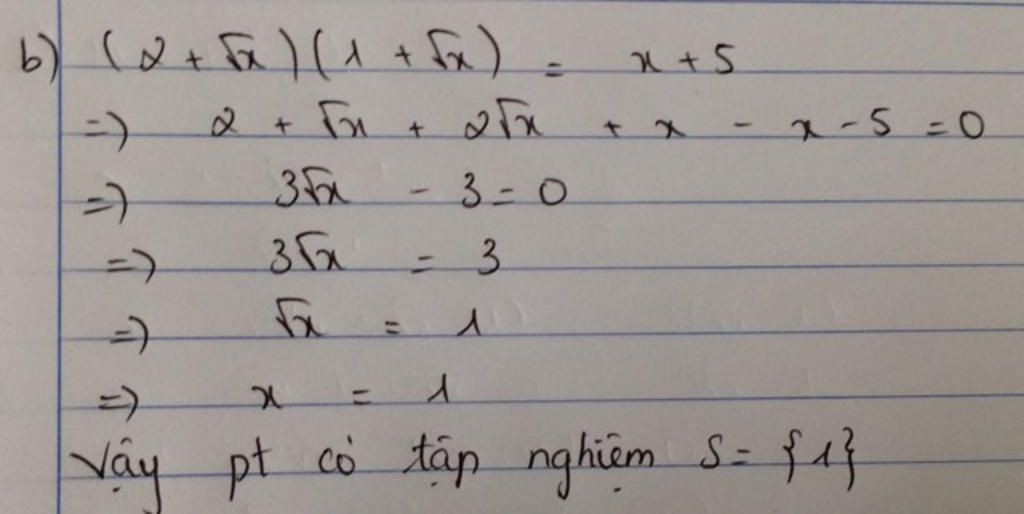 b) (2 + √x)(1 + √x) = x + 5
=> 2 + √x + 2√x + x - x - 5 = 0
=> 3√x - 3 = 0
=> 3√x = 3
=> √x = 1
=> x = 1
Vậy pt có tập nghiệm S = {1}